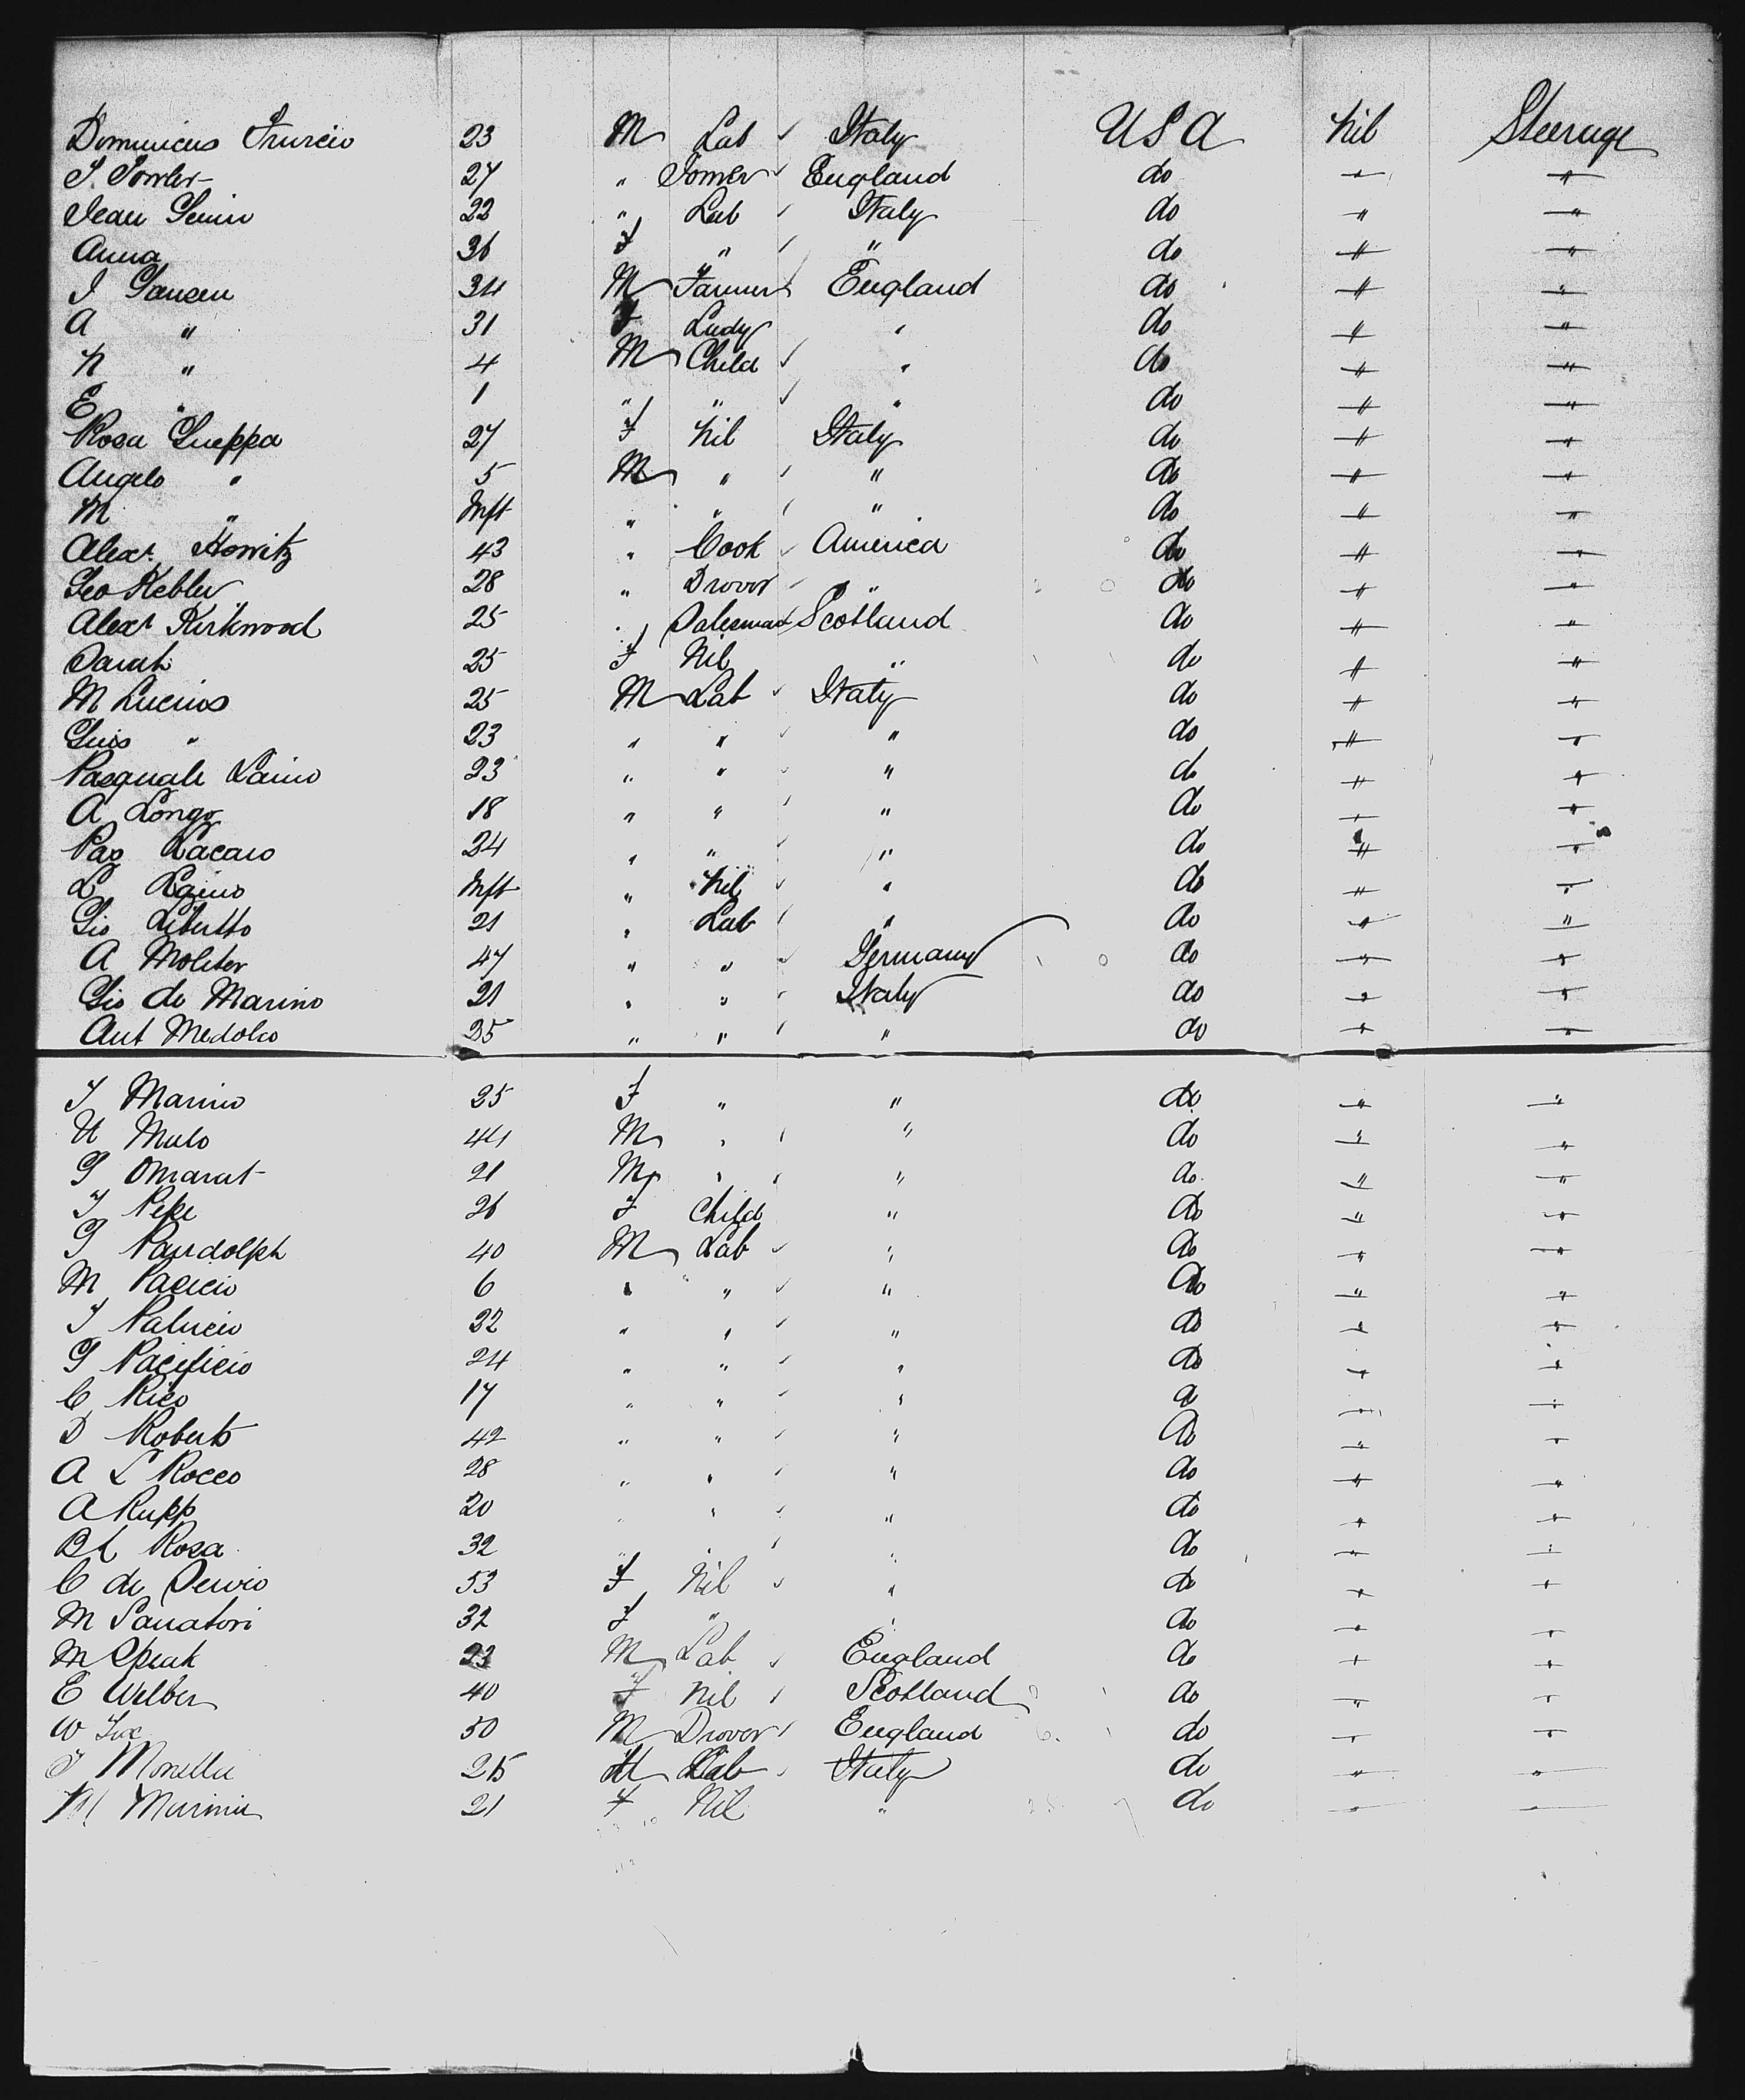 Dominicus Trurcio 23 M Lab Italy USA Nil Steerage
J. Fowler 27 " England do " "
Jean 22 " Lab Italy do " "
Anna 36 F " " do " "
J Jansen 34 M Farmer England do " "
A " 31 F Lady " do " "
N " 4 M Child " do " "
E " 1 " " " do " "
Rosa Gueppa 27 F Nil Italy do " "
Angelo " 5 M " " do " "
M " Inft " " " do " "
Alexr. Howitz 43 " Cook America do " "
Geo Kebler 28 " Drover " do " "
Alexr Kirkwood 25 " Salesman Scotland do " "
Sarah 25 F Nil " do " "
M Lucius 25 M Lab Italy do " "
Guis " 23 " " " do " "
Pasquale Laino 23 " " " do " "
A Longo 18 " " " do " "
Pas Lacaro 24 " " " do " "
L Laino Inft " Nil " do " "
Gio Libertto 21 " Lab " do " "
A Moliter 47 " " Germany do " "
Gio de Marino 21 " " Italy do " "
Ant Medolco 25 " " " do " "
F Marino 25 F " " do " "
U Mulo 44 M " " do " "
G 21 M " " do " "
F Pepe 26 F Child " do " "
G Pandolph 40 M Lab " do " "
M 6 " " " do " "
F Palucio 22 " " " do " "
G Pacificio 24 " " " do " "
C Rico 17 " " " do " "
D Roberto 42 " " " do " "
A L Rocco 28 " " " do " "
A Rupp 20 " " " do " "
Rosa 32 " " " do " "
C de 53 F Nil " do " "
M Sanatori 32 F " " do " "
M Speak 23 M Lab England do " "
E Welber 40 F Nil Scotland do " "
W Fox 50 M Drover England do " "
Monella 25 M Lab Italy do " "
M Marinia 21 F Nil " do " "